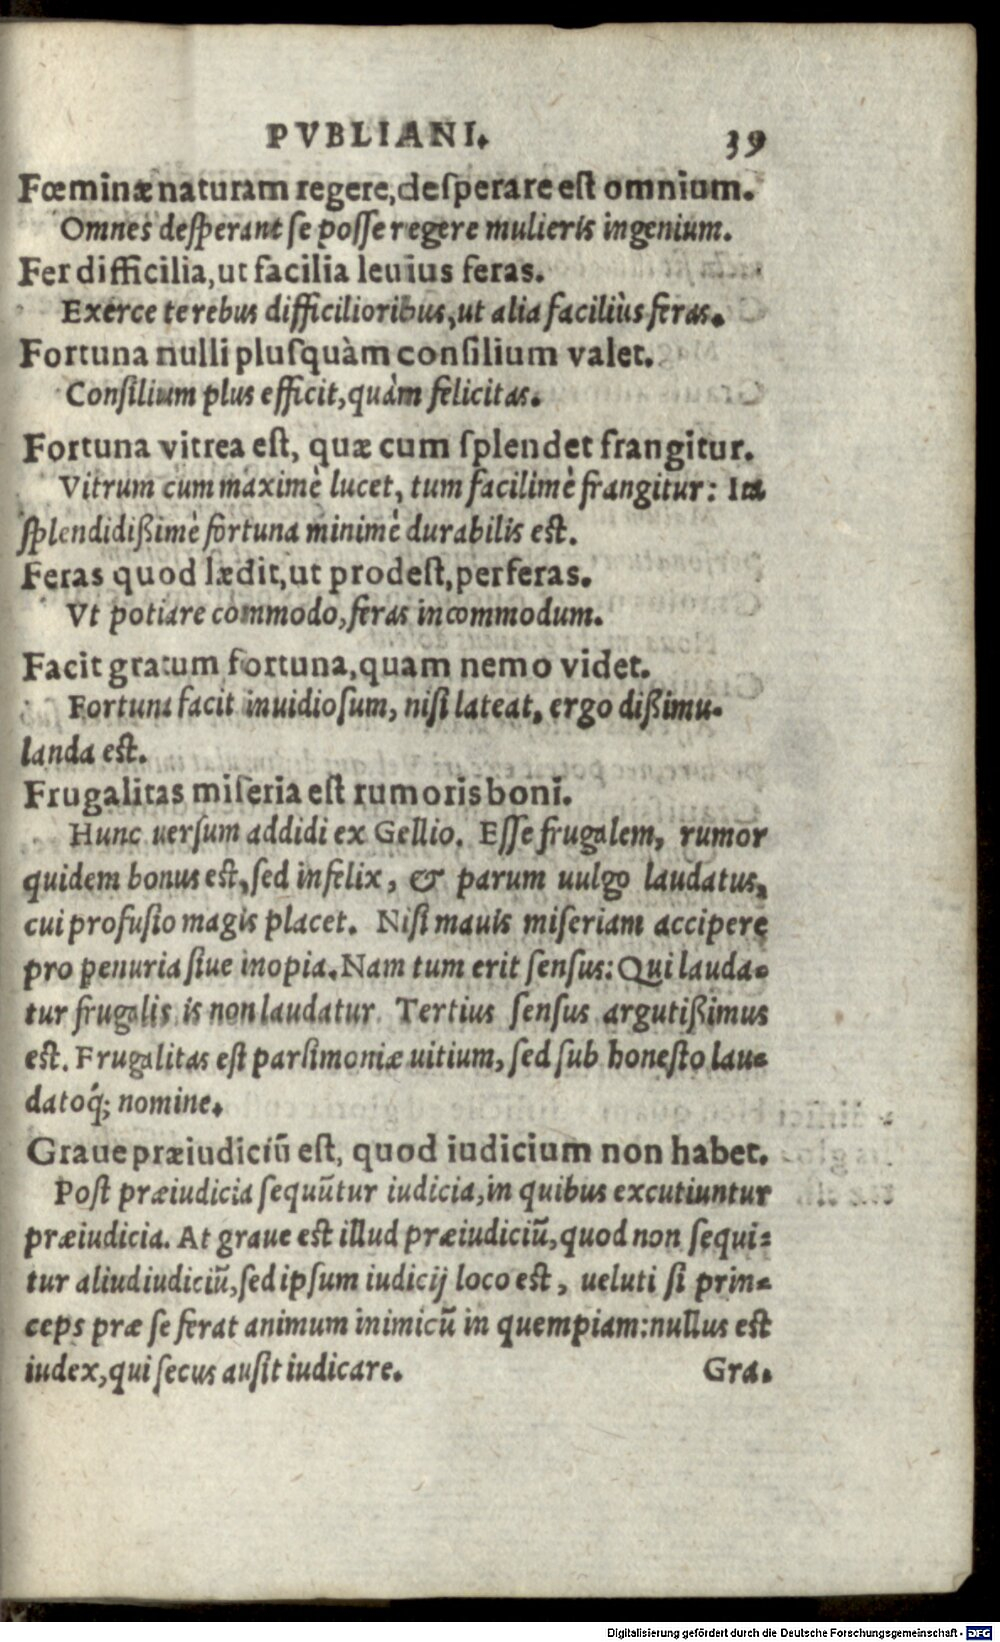 PVBLIANI. 39
Fœminæ naturam regere, desperare est omnium.
Omnes desperant se posse regere mulieris ingenium.
Fer difficilia, ut facilia leuius feras.
Exerce te rebus difficilioribus, ut alia faciliùs feras.
Fortuna nulli plusquàm consilium valet.
Consilium plus efficit, quàm felicitas.
Fortuna vitrea est, quæ cum splendet frangitur.
Vitrum cum maximè lucet, tum facilimè frangitur: Ita
splendidißimè fortuna minimè durabilis est.
Feras quod lædit, ut prodest, perferas.
Vt potiare commodo, feras incommodum.
Facit gratum fortuna, quam nemo videt.
Fortuna facit inuidiosum, nisi lateat, ergo dißimu-
landa est.
Frugalitas miseria est rumoris boni.
Hunc uersum addidi ex Gellio. Esse frugalem, rumor
quidem bonus est, sed infelix, & parum uulgo laudatus,
cui profusio magis placet. Nisi mauis miseriam accipere
pro penuria siue inopia. Nam tum erit sensus: Qui lauda-
tur frugalis is non laudatur. Tertius sensus argutißimus
est. Frugalitas est parsimoniæ uitium, sed sub honesto lau-
datoq́; nomine.
Graue præiudiciū est, quod iudicium non habet.
Post præiudicia sequūtur iudicia, in quibus excutiuntur
præiudicia. At graue est illud præiudiciū, quod non sequi-
tur aliud iudiciū, sed ipsum iudicij loco est, ueluti si prin-
ceps præ se ferat animum inimicū in quempiam: nullus est
iudex, qui secus ausit iudicare. Gra-
Digitalisierung gefördert durch die Deutsche Forschungsgemeinschaft - DFG